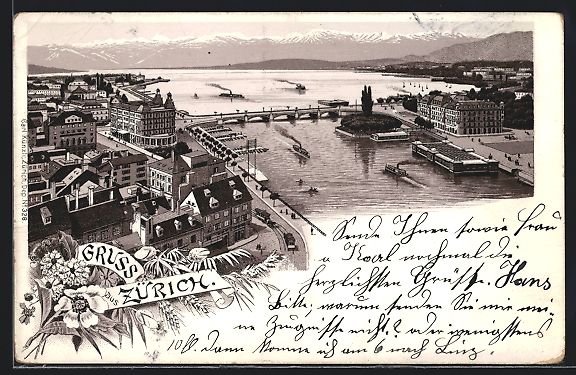 GRUSS
aus
ZÜRICH.
Carl Künzli, Zürich, Dep. No 328
Sende Ihnen sowie Frau
u Karl nochmal die
herzlichsten Grüsse. Hans
Bitte, warum senden Sie mir mei-
ne Zeugnisse nicht? oder wenigstens
dann komme ich am 6 nach Linz.